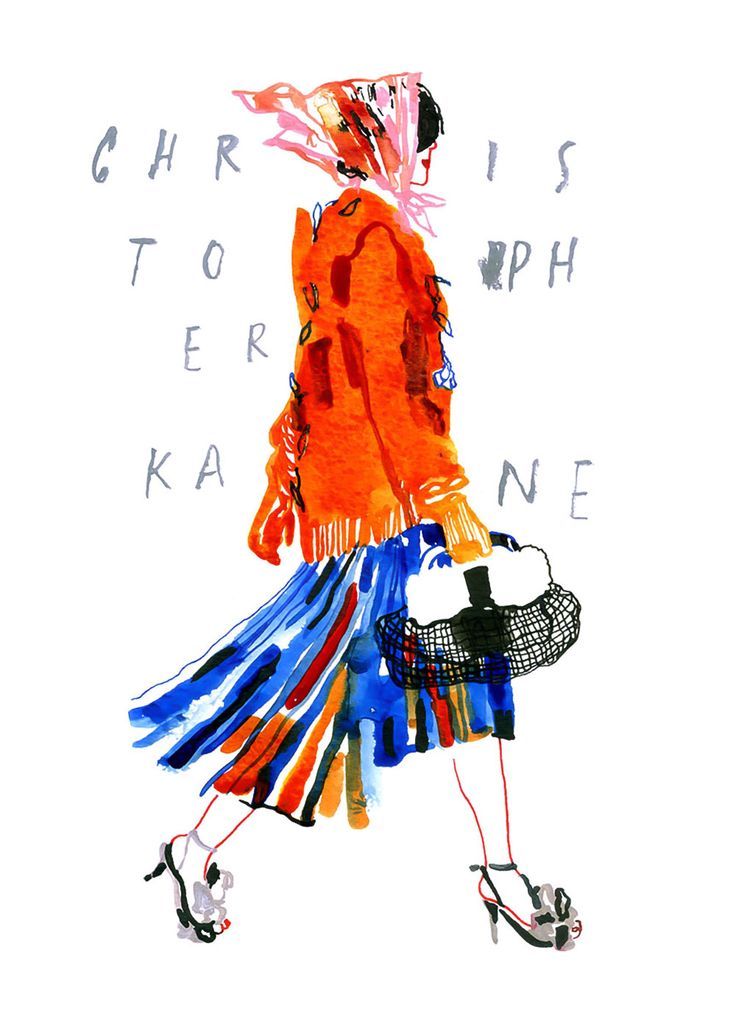 CHRIS
TOPH
ER
KANE